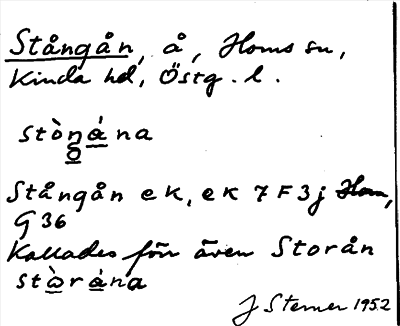 Stångån, å, Horns sn,
Kinda hd, Östg. l.
stòŋána
o
Stångån ek, ek 7F3j Horn,
G 36
Kallades förr även Storån
stòrána
J Sterner 1952